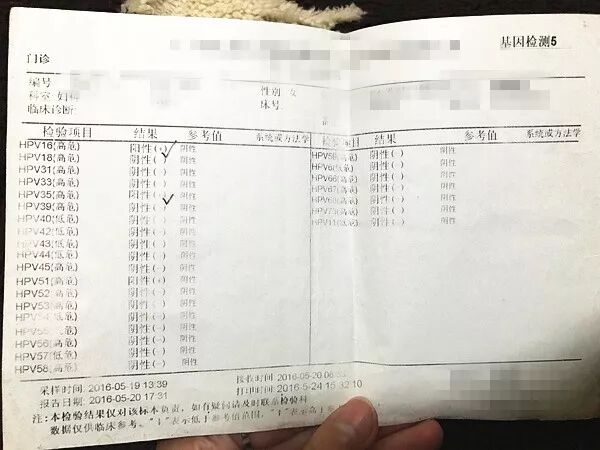 基因检测5
门诊
编号
性别 女
科室 妇科
床号
临床诊断
检验项目 结果 参考值 系统或方法学 检验项目 结果 参考值 系统或方法学
HPV16(高危) 阳性(+) 阴性
HPV18(高危) 阴性(-) 阴性
HPV31(高危) 阴性(-) 阴性
HPV33(高危) 阴性(-) 阴性
HPV35(高危) 阴性
HPV39(高危) 阴性(-) 阴性
HPV40(低危) 阴性(-) 阴性
HPV42(低危) 阴性(-) 阴性
HPV43(低危) 阴性(-) 阴性
HPV44(低危) 阴性(-) 阴性
HPV45(高危) 阴性(-) 阴性
HPV51(高危) 阳性(+) 阴性
HPV52(高危) 阴性(-) 阴性
HPV53(高危) 阴性(-) 阴性
阴性(-) 阴性
阴性(-) 阴性
HPV56(高危) 阴性(-) 阴性
HPV57(低危) 阴性(-) 阴性
HPV58(高危) 阴性(-) 阴性
阴性(-) 阴性
HPV6(低危) 阴性(-) 阴性
HPV66(高危) 阴性(-) 阴性
HPV67(低危) 阴性(-) 阴性
阴性(-) 阴性
阴性(-) 阴性
HPV11(低危) 阴性(-) 阴性
采样时间: 2016-05-19 13:39
接收时间: 2016-05-20
报告日期: 2016-05-20 17:31
打印时间: 2016-5-24 15:32:10
注:本检验结果仅对该标本负责,如有疑问请及时联系检验科
数据仅供临床参考。"↓"表示低于参考值范围,"↑"表示高于参